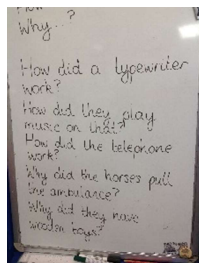 How
Why...?
How did a typewriter
work?
How did they play
music on that?
How did the telephone
work?
Why did the horses pull
the ambulance?
Why did they have
wooden toys?